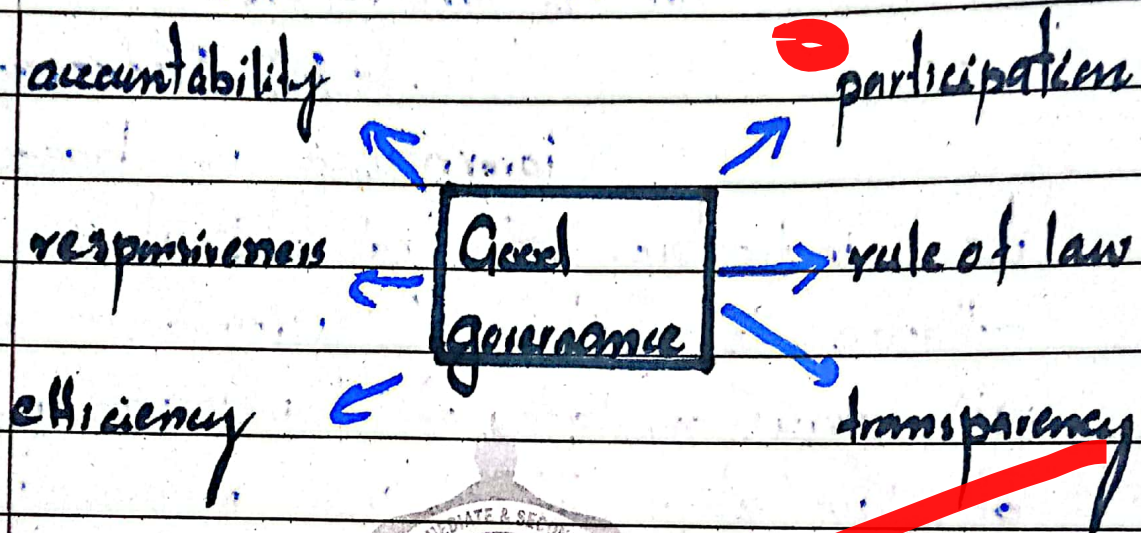 accountability
participation
responsiveness
Good
governance
rule of law
efficiency
transparency
MEDIATE & SECON